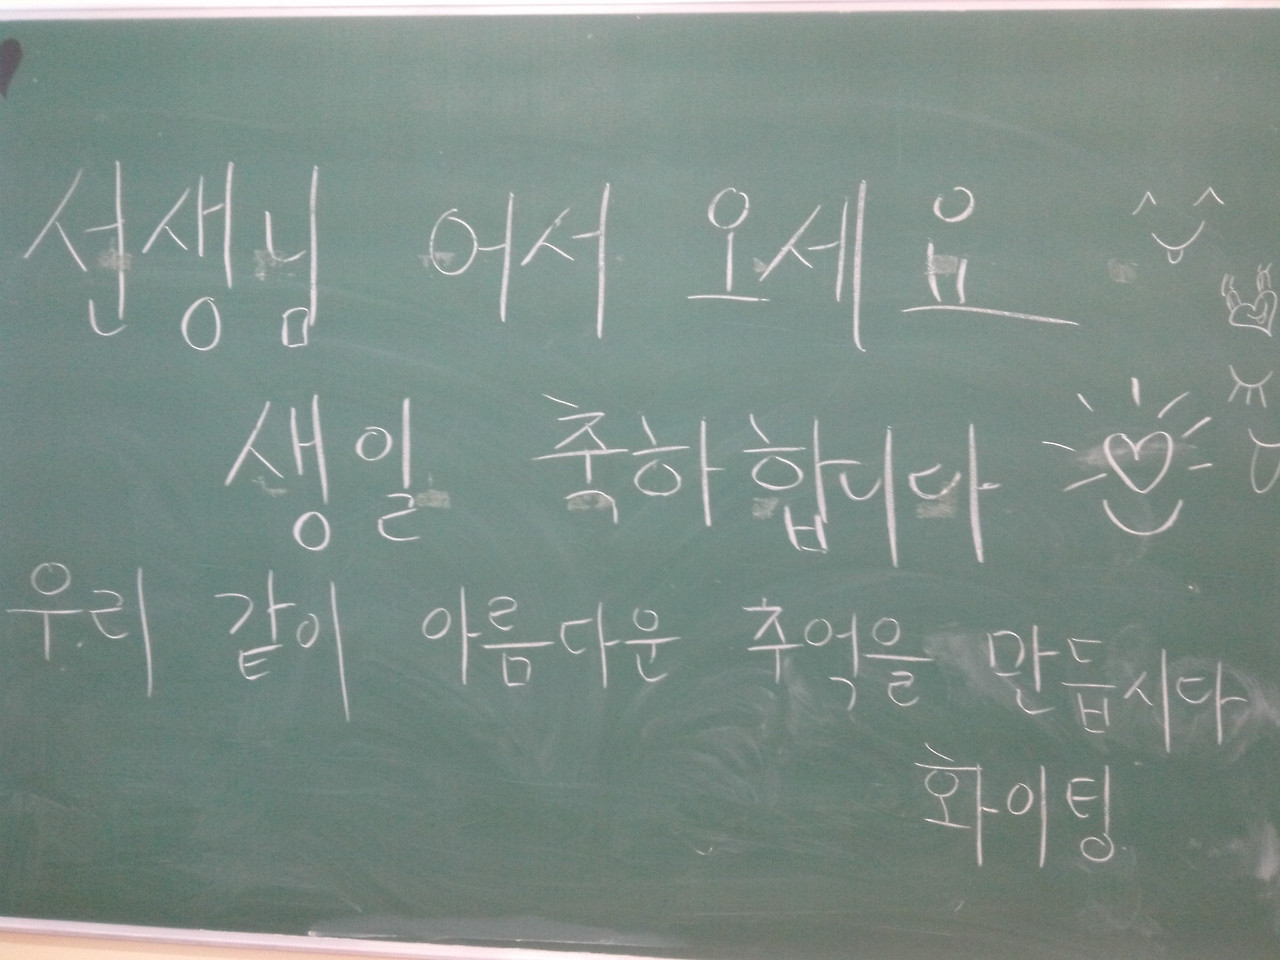 선생님 어서 오세요
생일 축하합니다
우리 같이 아름다운 추억을 만듭시다
화이팅